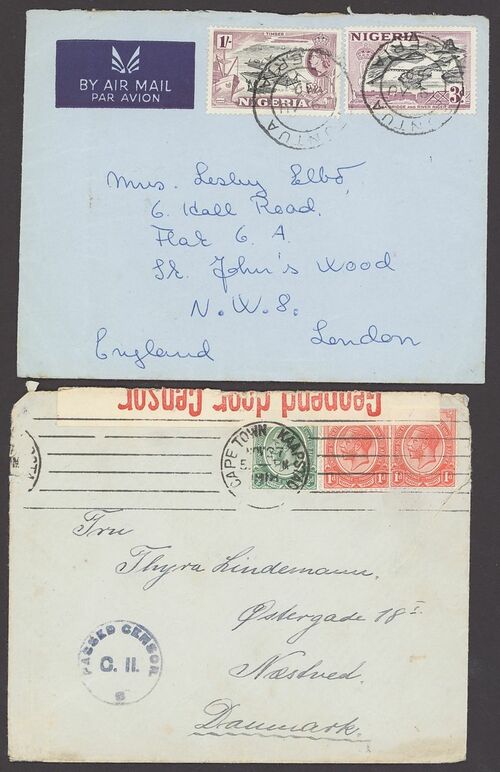 BY AIR MAIL
PAR AVION
1/-
TIMBER
NIGERIA
NIGERIA
3d
Mrs. Lesley Elbo
6. Hall Road.
Flat 6 A.
St. John's Wood
N. W. 8.
London
England
Geopend door Censor
CAPE TOWN KAAPSTAD
1d 1d
1d 1d
Fru
Thyra Lindemann.
Østergade 18
Næstved.
Danmark.
PASSED CENSOR
C. II.